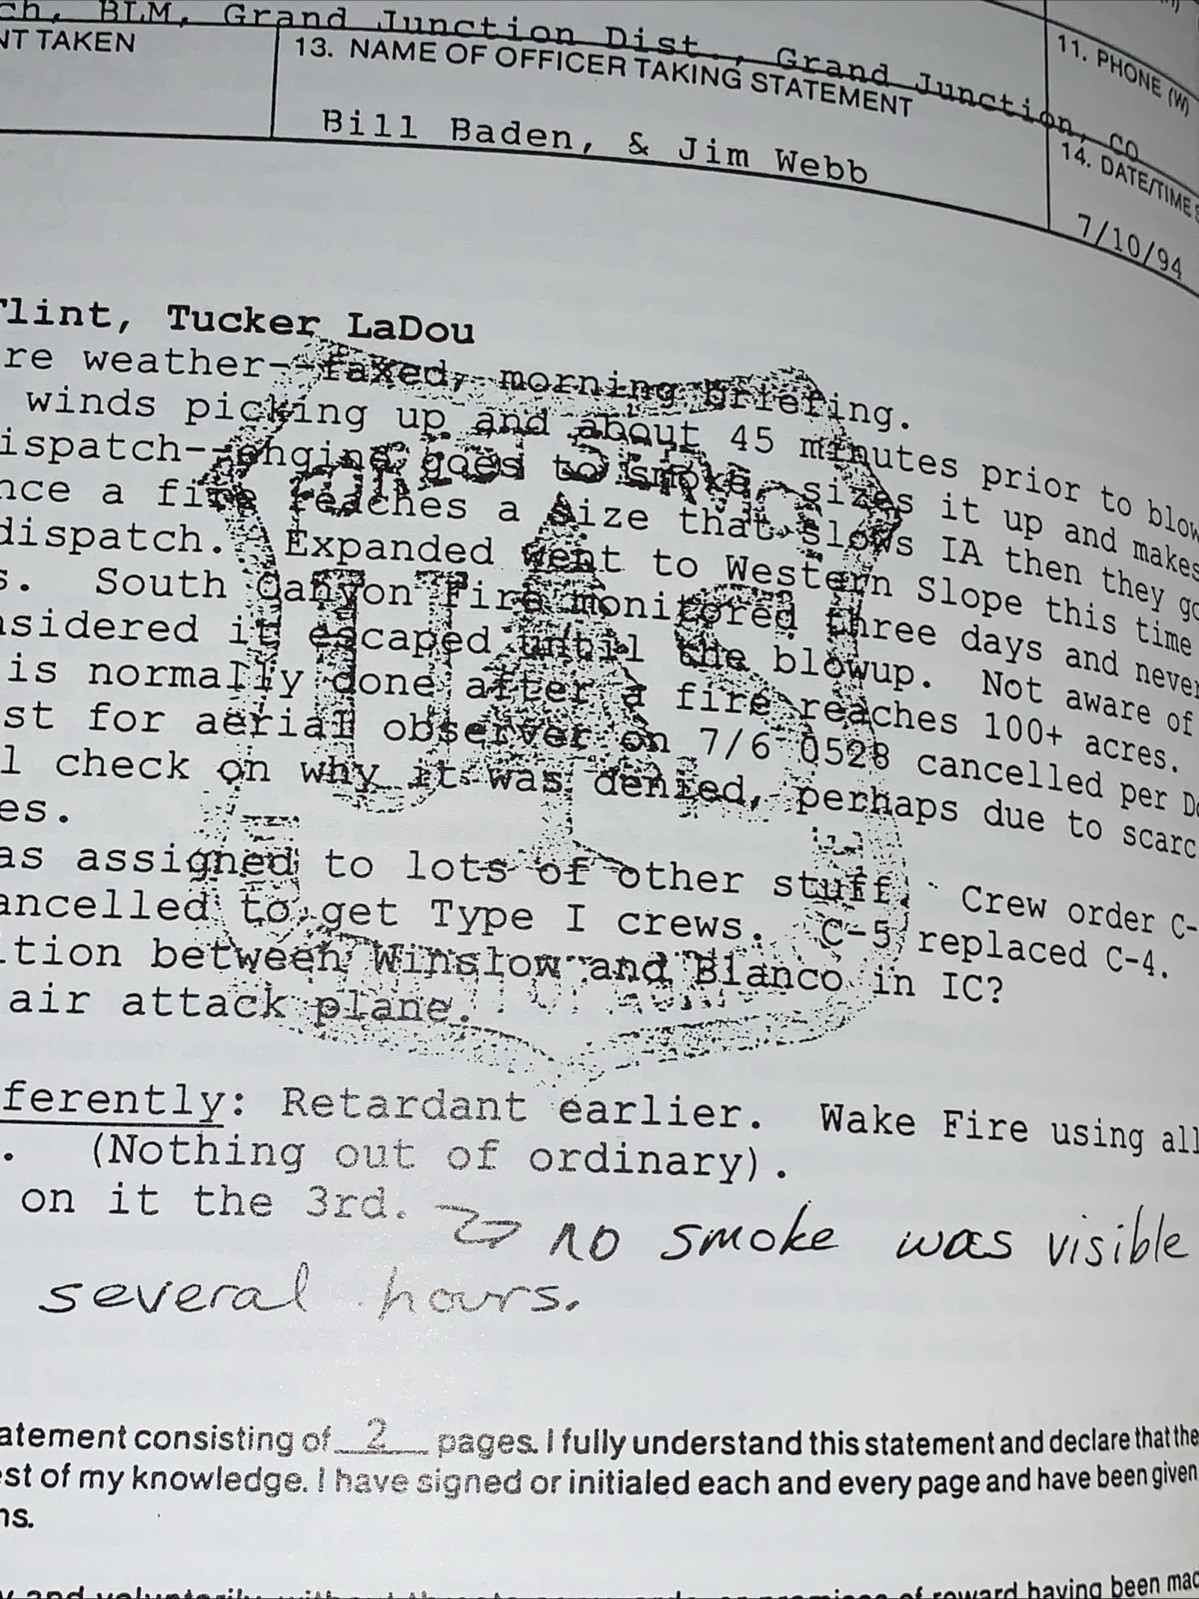 ch, BLM, Grand Junction Dist., Grand Junction, CO
11. PHONE (W)
NT TAKEN
13. NAME OF OFFICER TAKING STATEMENT
Bill Baden, & Jim Webb
14. DATE/TIME S
7/10/94
Flint, Tucker LaDou
re weather--faxed, morning briefing.
winds picking up and about 45 minutes prior to blow
ispatch--engine goes to smoke, sizes it up and makes
nce a fire reaches a size that slows IA then they go
dispatch. Expanded went to Western Slope this time
s. South Canyon Fire monitored three days and never
nsidered it escaped until the blowup. Not aware of
is normally done after a fire reaches 100+ acres.
st for aerial observer on 7/6 0528 cancelled per Do
l check on why it was denied, perhaps due to scarc
es.
as assigned to lots of other stuff. Crew order C-
ancelled to get Type I crews. C-5 replaced C-4.
ition between Winslow and Blanco in IC?
air attack plane.
ferently: Retardant earlier. Wake Fire using all
. (Nothing out of ordinary).
on it the 3rd. no smoke was visible
several hours.
atement consisting of 2 pages. I fully understand this statement and declare that the
est of my knowledge. I have signed or initialed each and every page and have been given
ns.
y and voluntarily, without threats or rewards, or promises of reward having been mad